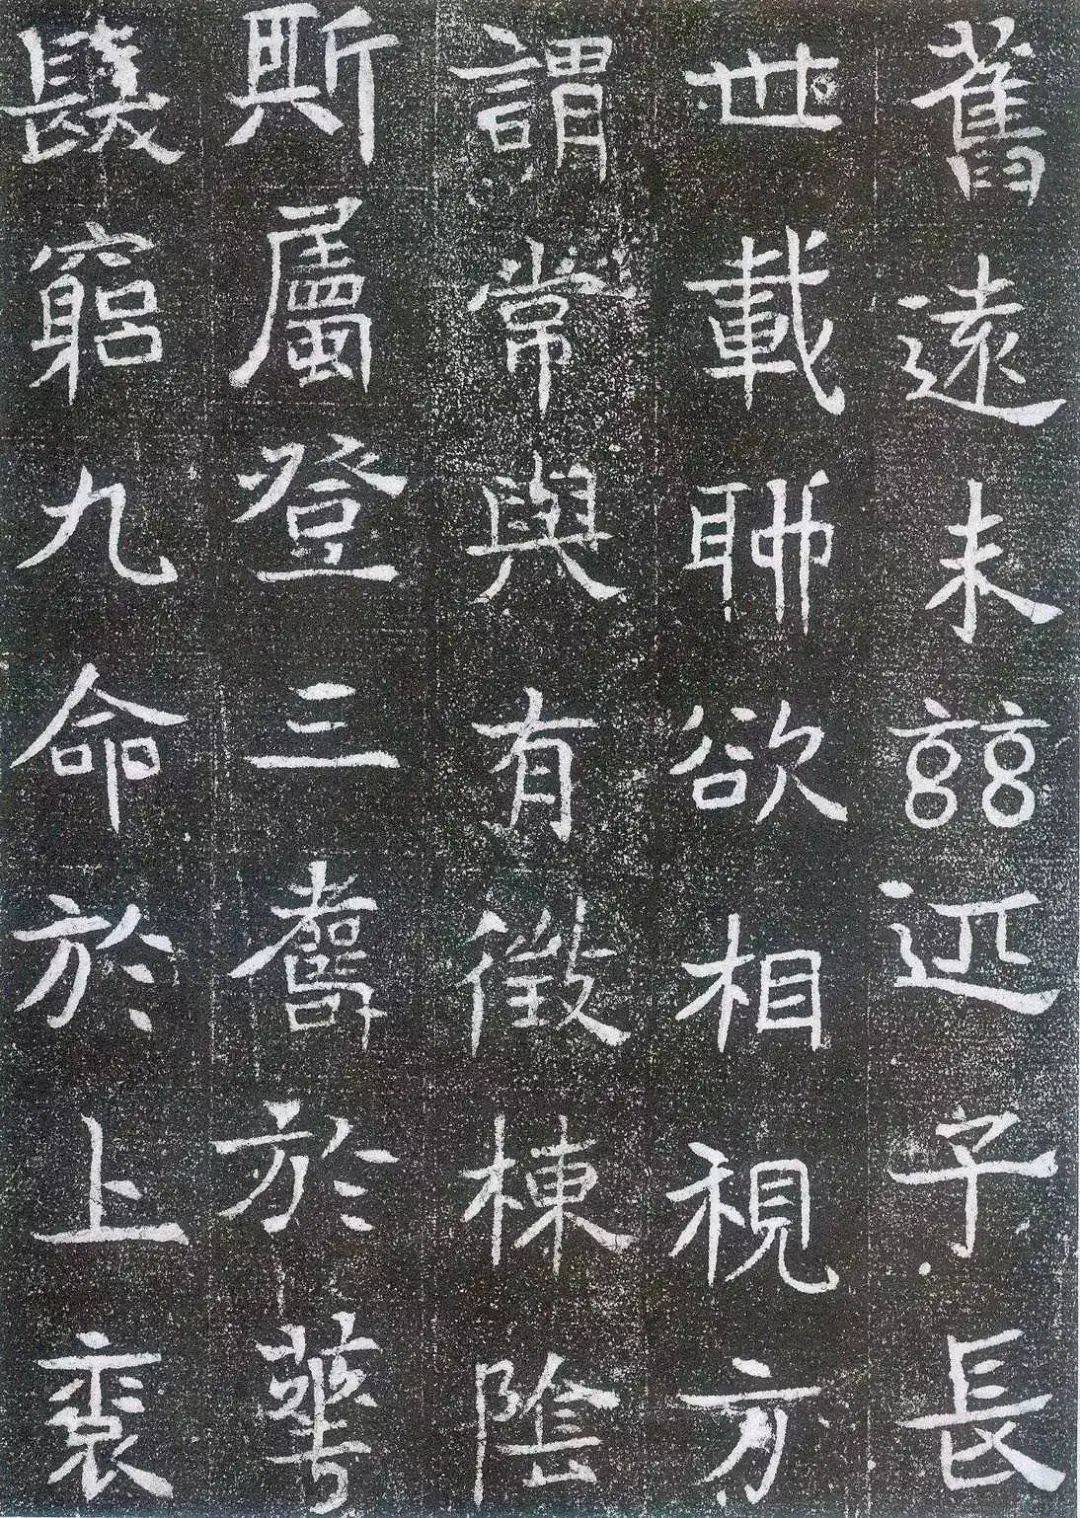 舊遠未茲近予長
世載聊欲相視方
謂常與有徵棟陰
斯屬登三壽於華
髮窮九命於上衮